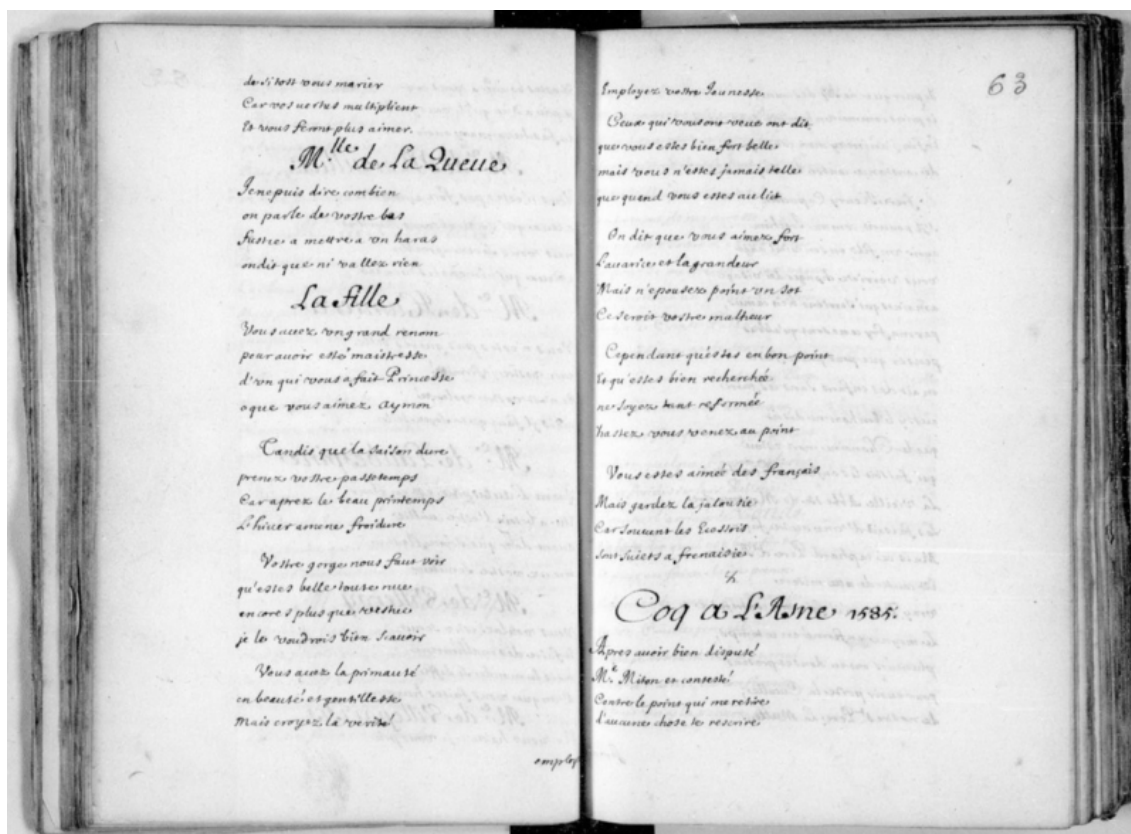 de si tost vous marier
Car vos vertus multiplient
Et vous feront plus aimer.
M.lle de La Queue
Je ne puis dire combien
on parle de vostre bas
fustie a mettre a vn haras
on dit que ni vallez rien
La fille
Vous avez vn grand renom
pour avoir esté maistresse
d'vn qui vous a fait Princesse
o que vous aimez Aymon
Tandis que la saison dure
prenez vostre passetemps
Car aprez le beau printemps
L'hiver amene froidure
Vostre gorge nous faut voir
qu'estes belle toute nue
encores plus que vestue
je le voudrois bien scavoir
Vous avez la primauté
en beauté et gentillesse
Mais croyez la verité
employ
63
Employez vostre Jeunesse
Ceux qui vous ont veue ont dit
que vous estes bien fort belle
mais vous n'estes jamais telle
que quand vous estes au lict
On dit que vous aimez fort
L'avarice et la grandeur
Mais n'epousez point vn sot
Ce seroit vostre malheur
Cependant qu'estes en bon point
Et qu'estes bien recherchée
ne soyez tant refformée
hastez vous venez au point
Vous estes aimée des français
Mais gardez la jalousie
Car souvent les Ecossois
sont suiets a frenaisie
Coq a L'Asne 1585.
Apres avoir bien disputé
Mre Miton et contesté
Contre le point qui me retire
D'aucune chose te rescrire